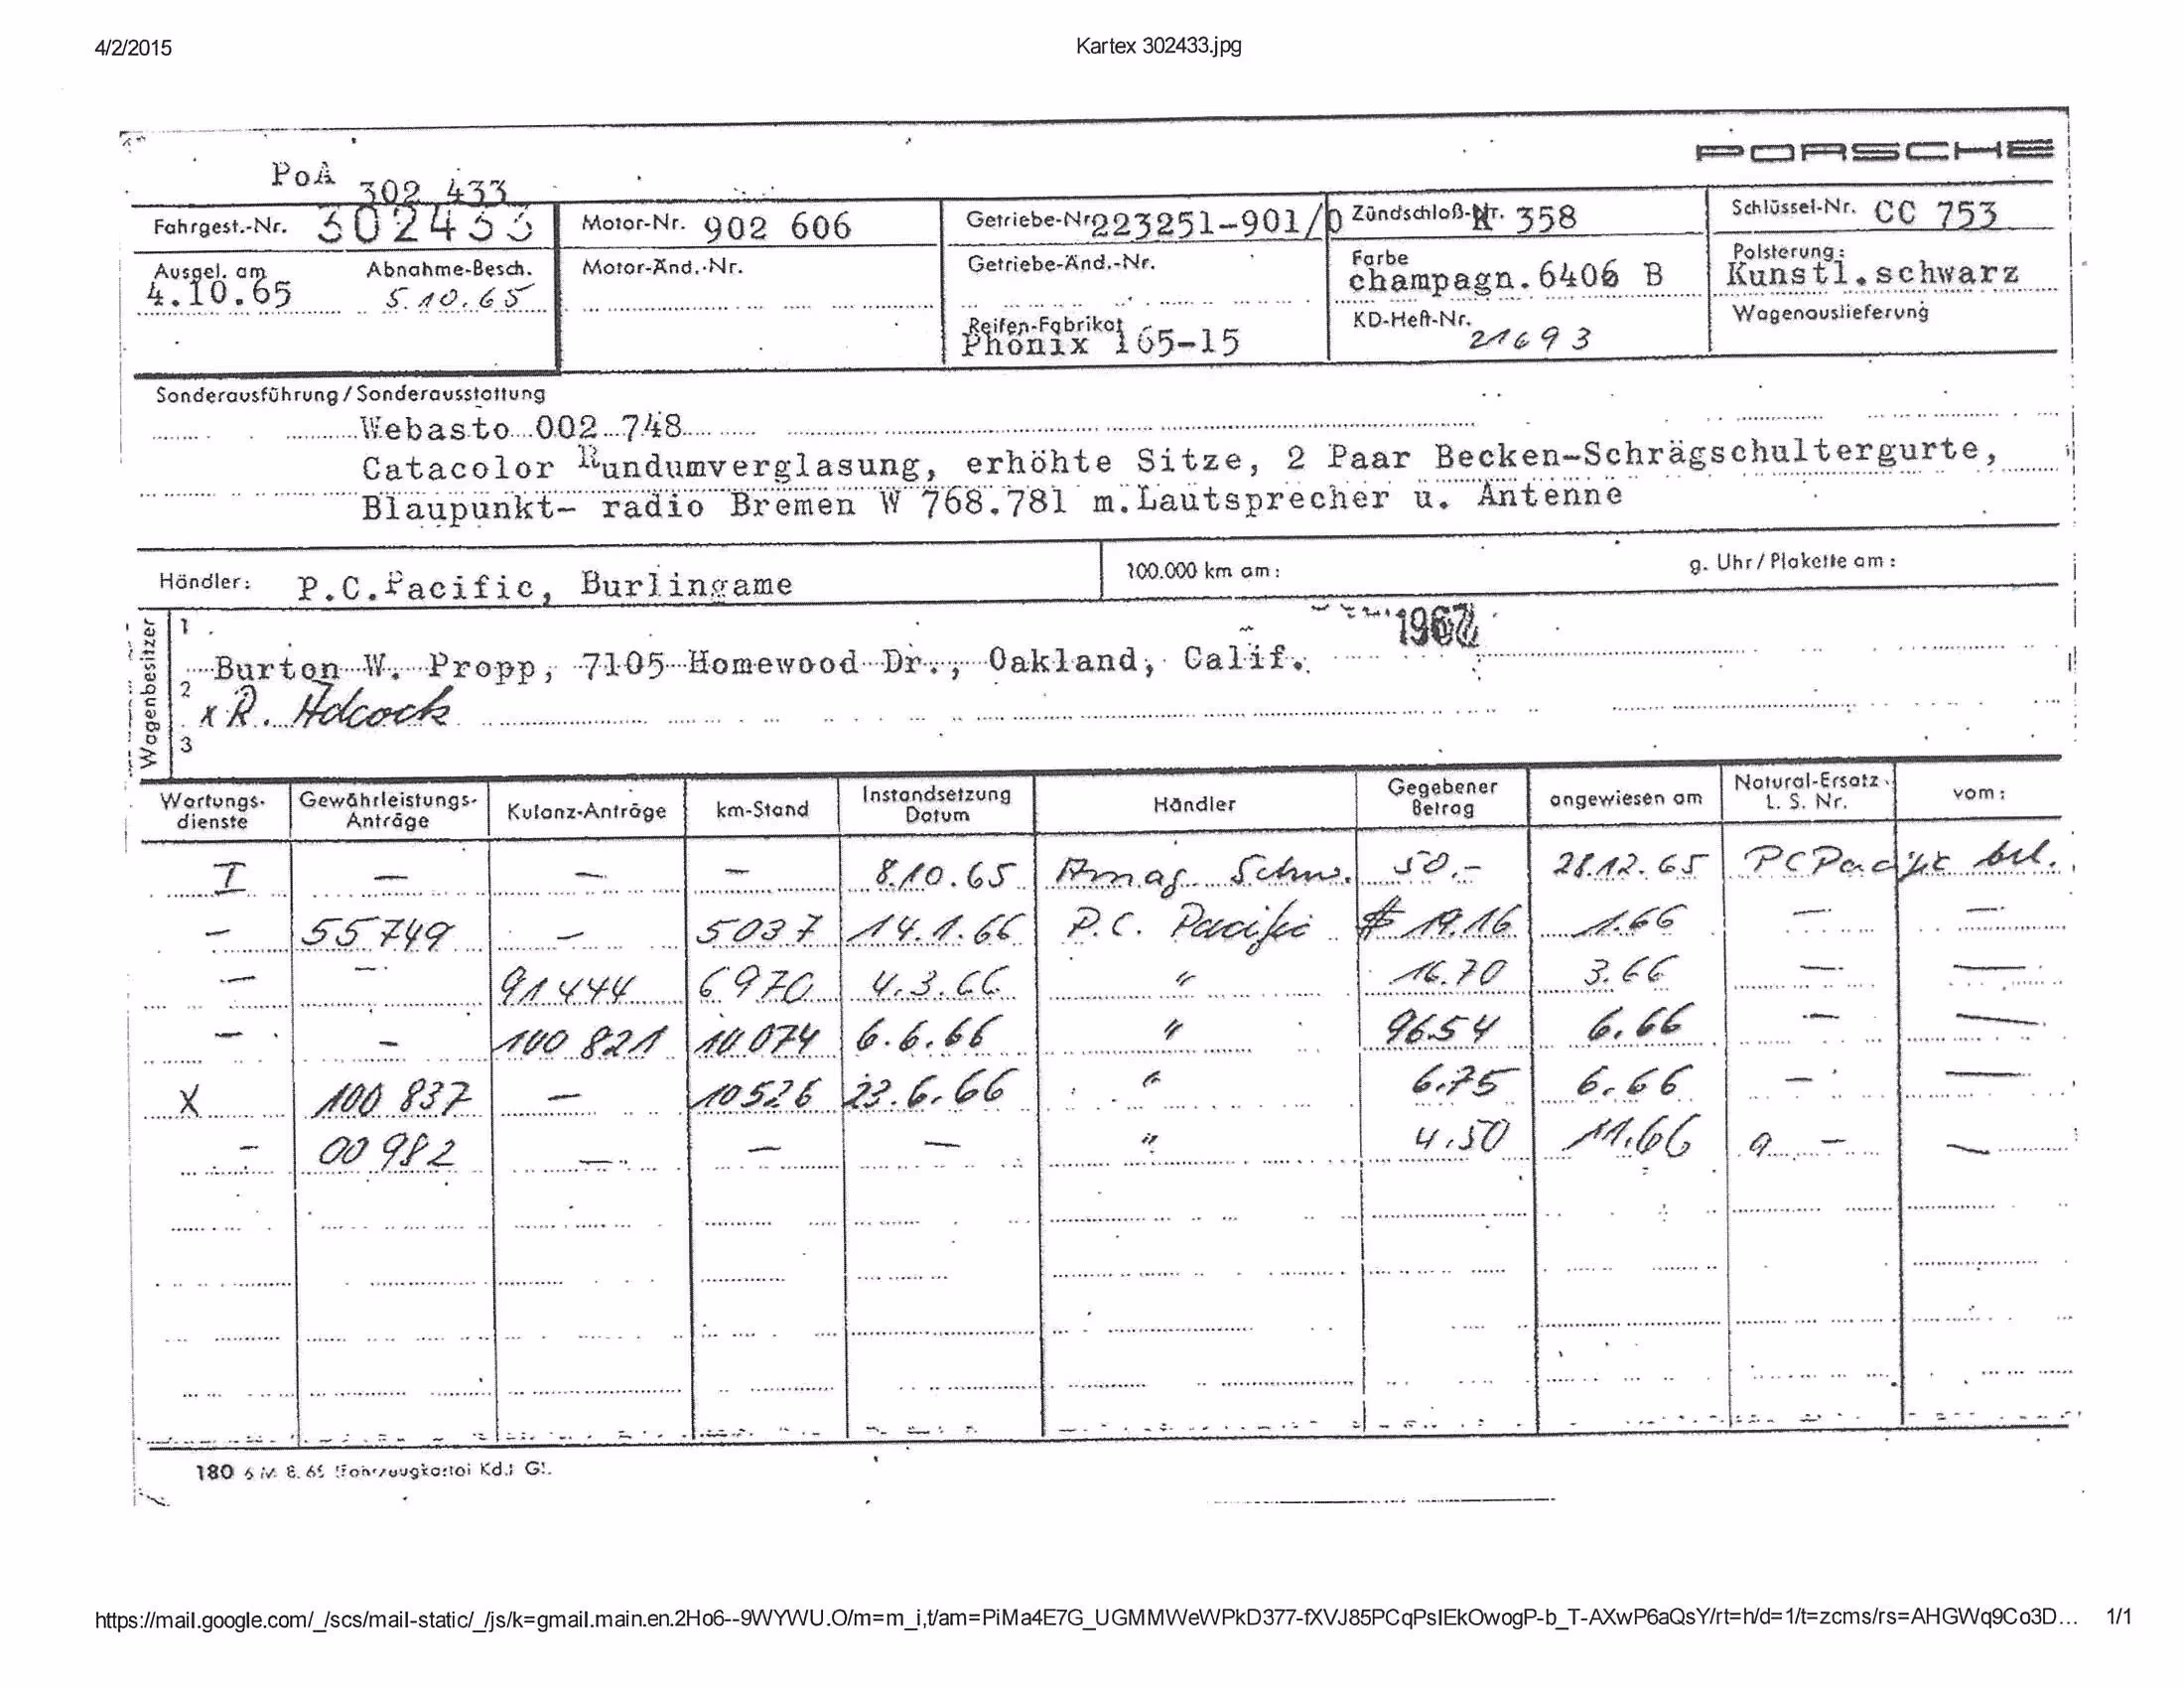 4/2/2015 Kartex 302433.jpg
PORSCHE
PoA 302 433
Fahrgest.-Nr. 302433 Motor-Nr. 902 606 Getriebe-Nr 223251-901/0 Zündschloß-Nr. 358 Schlüssel-Nr. CC 753
Ausgel. am 4.10.65 Abnahme-Besch. 5.10.65 Motor-Änd.-Nr. Getriebe-Änd.-Nr. Farbe champagn.6406 B Polsterung: Kunstl.schwarz
Reifen-Fabrikat Phönix 165-15 KD-Heft-Nr. 21693 Wagenauslieferung
Sonderausführung / Sonderausstattung
Webasto 002 748
Catacolor Rundumverglasung, erhöhte Sitze, 2 Paar Becken-Schrägschultergurte,
Blaupunkt- radio Bremen W 768.781 m.Lautsprecher u. Antenne
Händler: P.C.Pacific, Burlingame 100.000 km am: g. Uhr / Plakette am:
Wagenbesitzer
1967
1 Burton W. Propp, 7105 Homewood Dr., Oakland, Calif.
2 x R. Adcock
3
Wartungs-dienste Gewährleistungs-Anträge Kulanz-Anträge km-Stand Instandsetzung Datum Händler Gegebener Betrag angewiesen am Natural-Ersatz L. S. Nr. vom:
I — — — 8.10.65 Amag Schw. 50.- 28.12.65 PC Pacific bel.
— 55749 — 5037 14.1.66 P.C. Pacific $ 19.16 1.66 — —
— — 91444 6970 4.3.66 " 16.70 3.66 — —
— — 100 821 10 074 6.6.66 " 96.54 6.66 — —
X 100 837 — 10526 23.6.66 " 6.75 6.66 — —
— 00 982 — — — " 4.50 11.66 a — —
180 6 M 8. 65 Fahrzeugkartei Kd.
https://mail.google.com/_/scs/mail-static/_/js/k=gmail.main.en.2Ho6--9WYWU.O/m=m_i,t/am=PiMa4E7G_UGMMWeWPkD377-fXVJ85PCqPsIEkOwogP-b_T-AXwP6aQsY/rt=h/d=1/t=zcms/rs=AHGWq9Co3D... 1/1